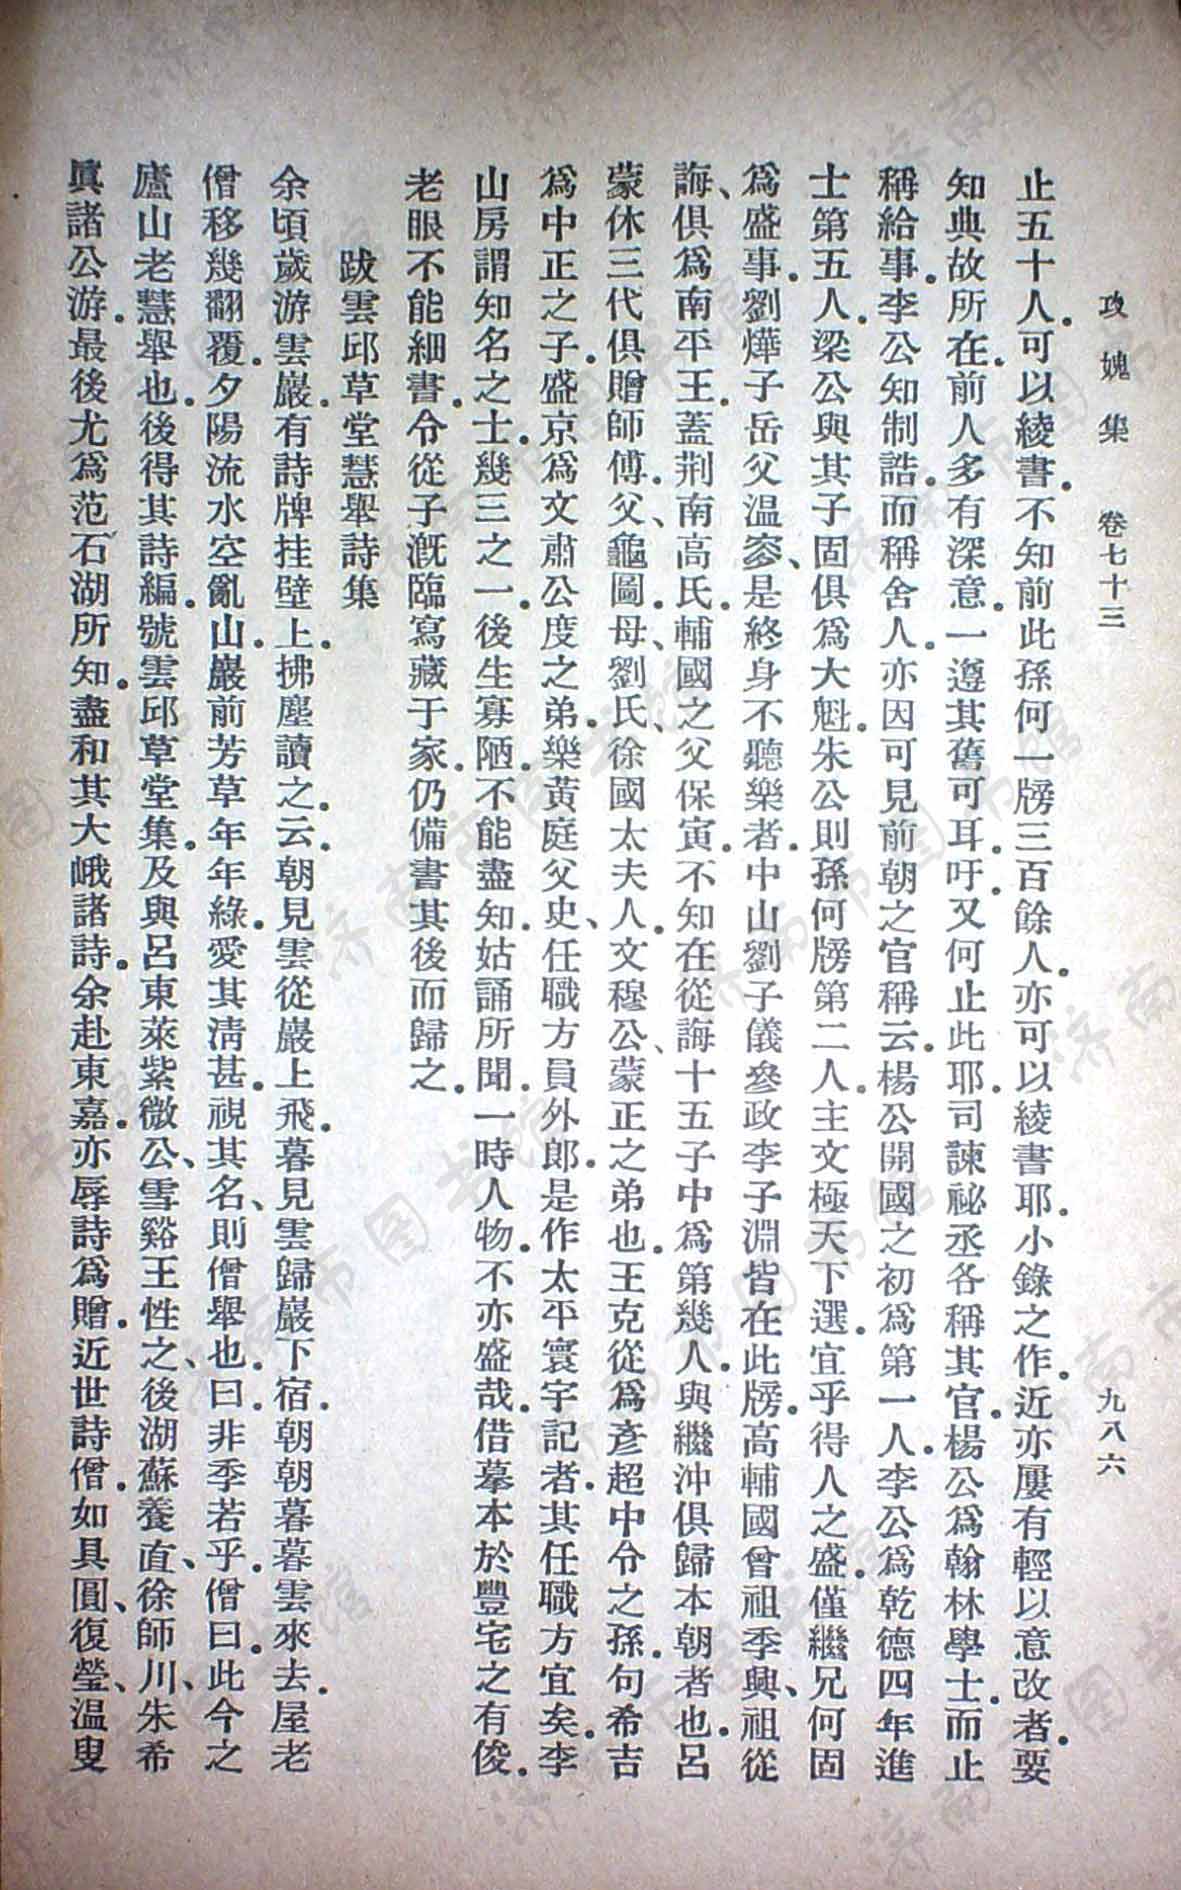 攻媿集 卷七十三 九八六
止五十人。可以綾書。不知前此孫何一牓三百餘人。亦可以綾書耶。小錄之作。近亦屢有輕以意改者。要
知典故所在。前人多有深意。一遵其舊可耳。吁。又何止此耶。司諫祕丞各稱其官。楊公爲翰林學士。而止
稱給事。李公知制誥。而稱舍人。亦因可見前朝之官稱云。楊公開國之初。爲第一人。李公爲乾德四年進
士第五人。梁公與其子固俱爲大魁。朱公則孫何牓第二人。主文極天下選。宜乎得人之盛。僅繼兄何固
爲盛事。劉燁子岳父溫、叅、是終身不聽樂者。中山劉子儀參政李子淵皆在此牓。高輔國曾祖季興、祖從
誨、俱爲南平王。蓋荆南高氏。輔國之父保寅。不知在從誨十五子中爲第幾人。與繼沖俱歸本朝者也。呂
蒙休三代俱贈師傅。父、龜圖。母、劉氏、徐國太夫人。文穆公、蒙正之弟也。王克從爲彥超中令之孫。句希吉
爲中正之子。盛京爲文肅公度之弟。樂黃庭父史、任職方員外郎。是作太平寰宇記者。其任職方宜矣。李
山房謂知名之士。幾三之一。後生寡陋。不能盡知。姑誦所聞。一時人物。不亦盛哉。借摹本於豐宅之有俊。
老眼不能細書。令從子漑臨寫藏于家。仍備書其後而歸之。
跋雲邱草堂慧舉詩集
余頃歲游雲巖。有詩牌挂壁上。拂塵讀之。云。朝見雲從巖上飛。暮見雲歸巖下宿。朝朝暮暮雲來去。屋老
僧移幾翻覆。夕陽流水空亂山。巖前芳草年年綠。愛其清甚。視其名、則僧舉也。曰。非季若乎。僧曰。此今之
廬山老慧舉也。後得其詩編。號雲邱草堂集。及與呂東萊紫微公、雪谿王性之、後湖蘇養直、徐師川、朱希
眞諸公游。最後尤爲范石湖所知。盡和其大峨諸詩。余赴東嘉。亦辱詩爲贈。近世詩僧。如具圓、復瑩、溫叟